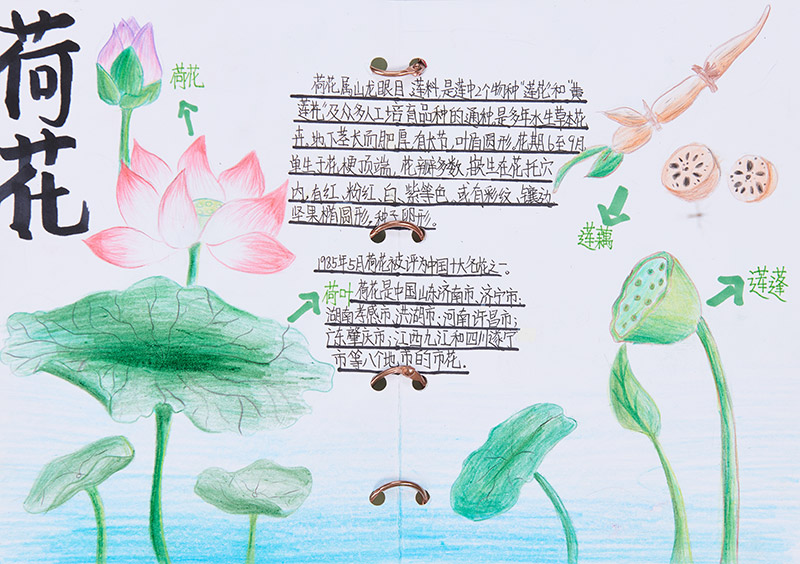 荷花
荷花
荷花属山龙眼目,莲科,是莲中2个物种"莲花"和"
莲花"及众多人工培育品种的通称,是多年水生草本花
卉,地下茎长而肥厚,有长节,叶盾圆形,花期6至9月,
单生于花梗顶端,花瓣多数,嵌生在花托穴
内,有红、粉红、白、紫等色,或有彩纹、镶边
坚果椭圆形,种子卵形。
莲藕
1985年5月荷花被评为中国十大名花之一。
荷叶
荷花是中国山东济南市、济宁市;
湖南孝感市、洪湖市;河南许昌市;
广东肇庆市;江西九江和四川遂宁
市等八个地市的市花.
莲蓬